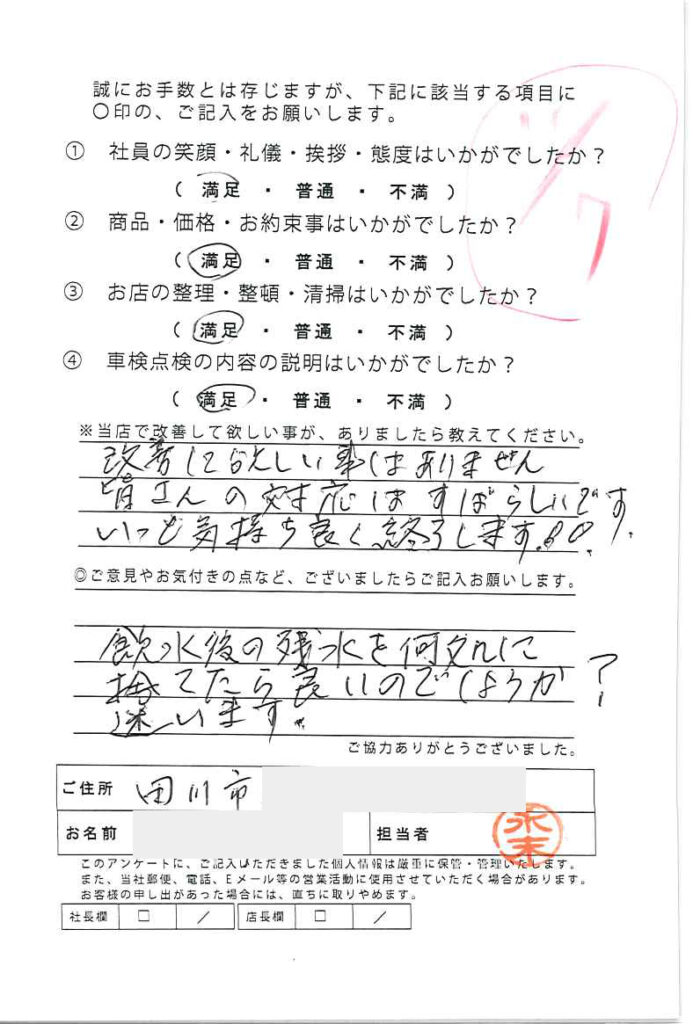 誠にお手数とは存じますが、下記に該当する項目に
〇印の、ご記入をお願いします。
① 社員の笑顔・礼儀・挨拶・態度はいかがでしたか？
（ 満足 ・ 普通 ・ 不満 ）
② 商品・価格・お約束事はいかがでしたか？
（ 満足 ・ 普通 ・ 不満 ）
③ お店の整理・整頓・清掃はいかがでしたか？
（ 満足 ・ 普通 ・ 不満 ）
④ 車検点検の内容の説明はいかがでしたか？
（ 満足 ・ 普通 ・ 不満 ）
※当店で改善して欲しい事が、ありましたら教えてください。
改善して欲しい事はありません
皆さんの対応はすばらしいです
いつも気持ち良く終了します。
◎ご意見やお気付きの点など、ございましたらご記入お願いします。
飲水後の残水を何処に
捨てたら良いのでしょうか？
迷います。
ご協力ありがとうございました。
ご住所 田川市
お名前 担当者 永末
このアンケートに、ご記入いただきました個人情報は厳重に保管・管理いたします。
また、当社郵便、電話、Eメール等の営業活動に使用させていただく場合があります。
お客様の申し出があった場合には、直ちに取りやめます。
社長欄 □ / 店長欄 □ /